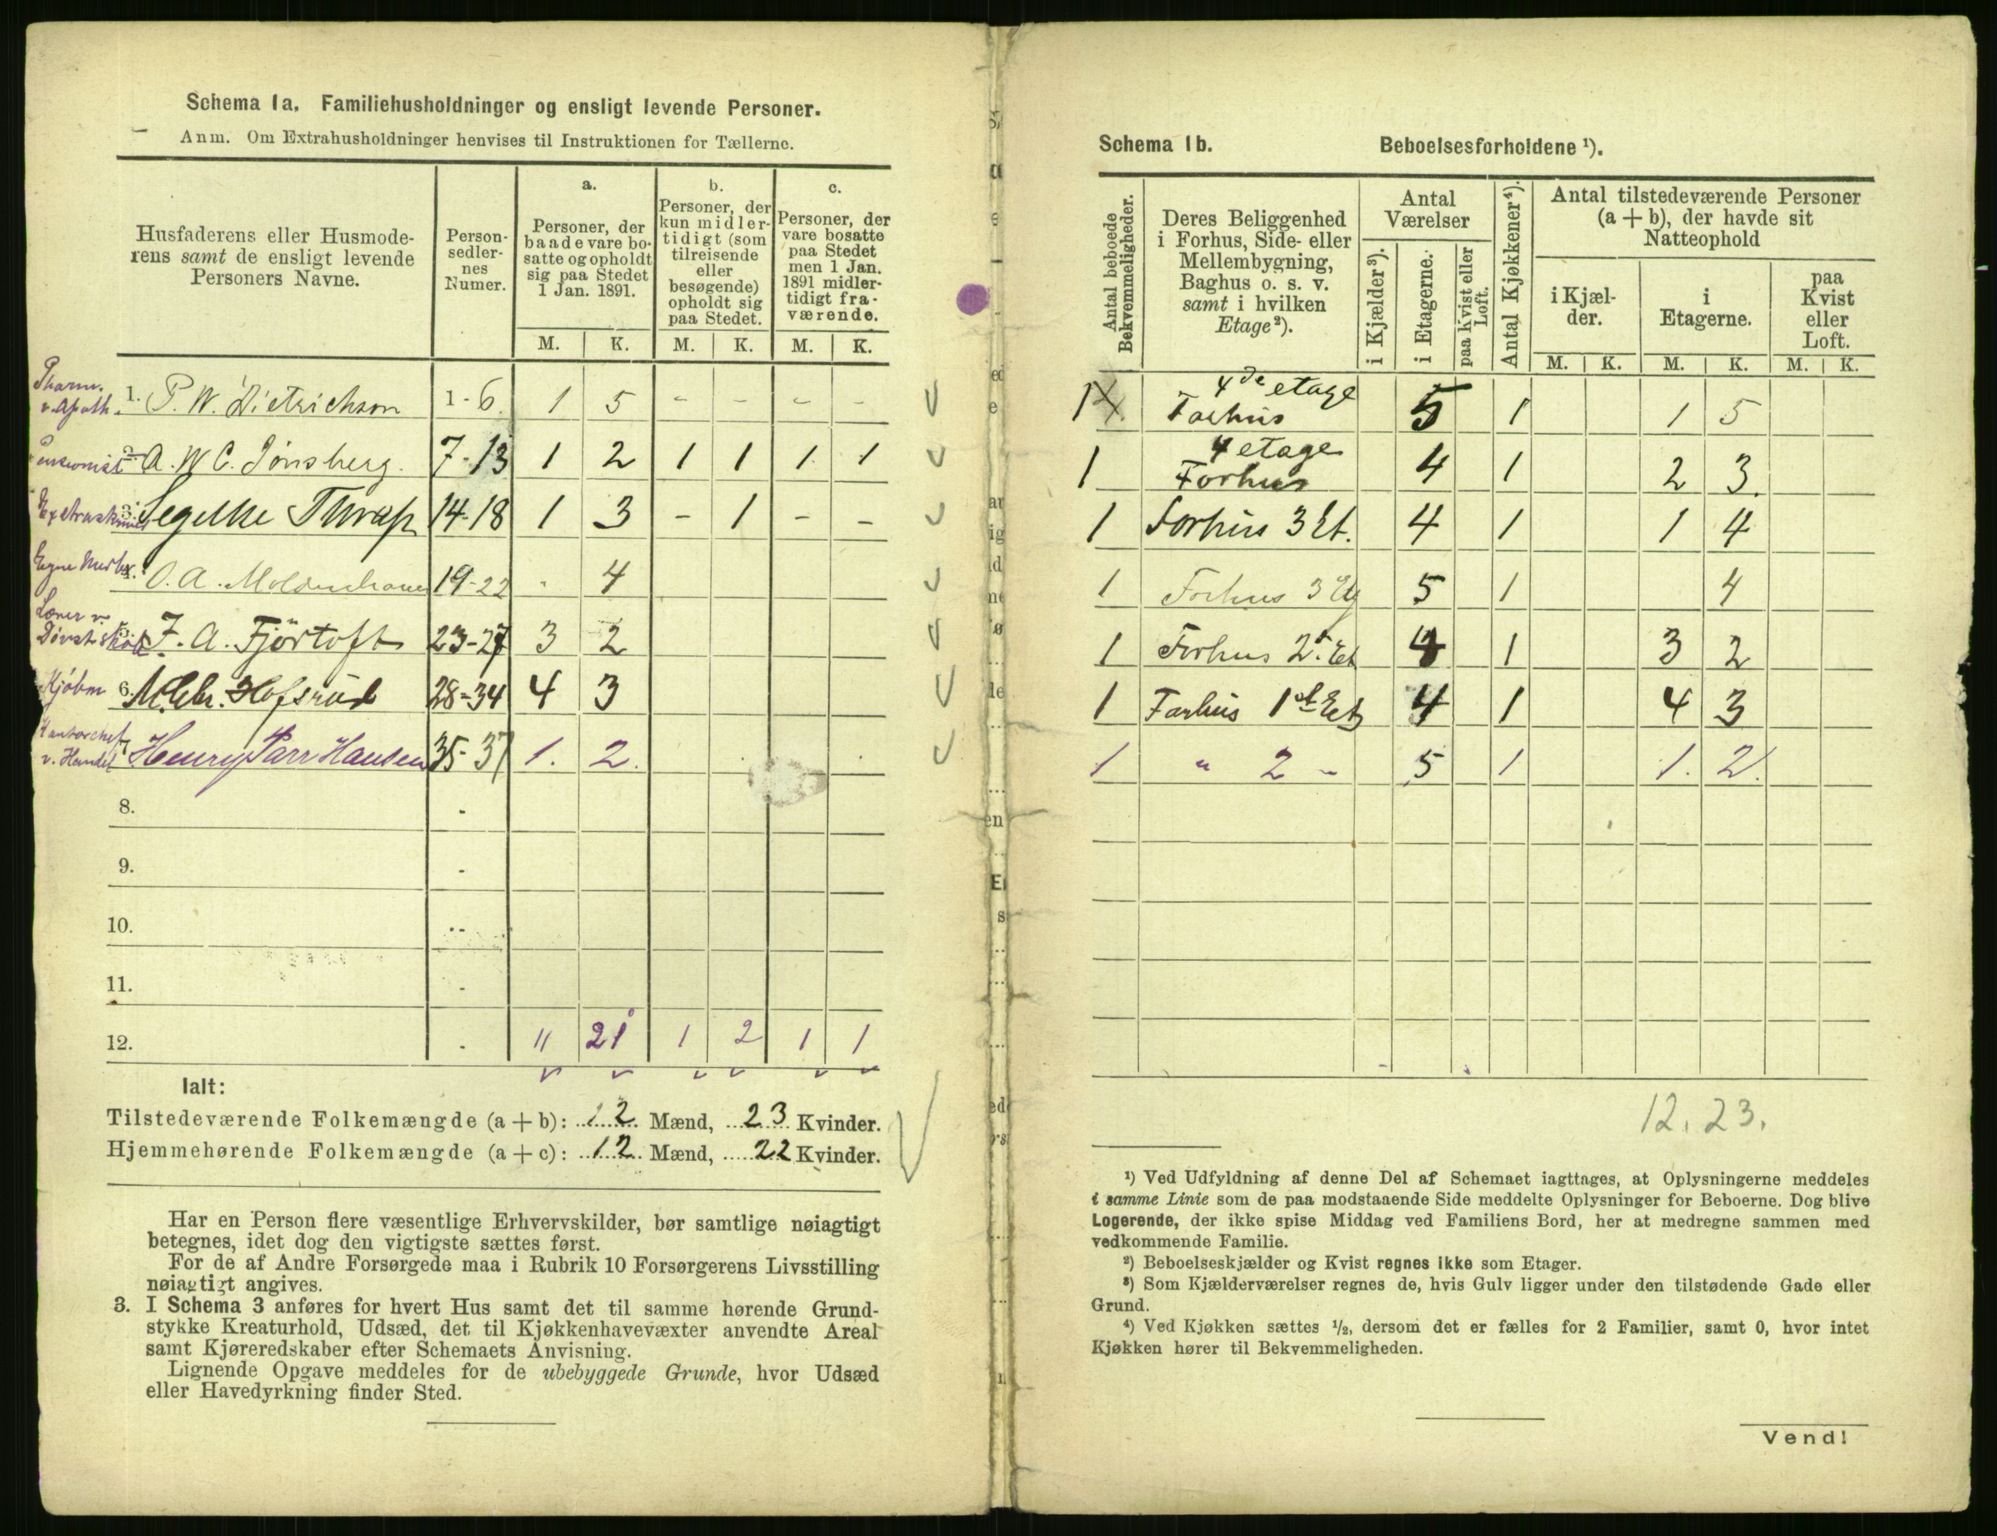 Schema 1a. Familiehusholdninger og ensligt levende Personer.
Anm. Om Extrahusholdninger henvises til Instruktionen for Tællerne.
Husfaderens eller Husmoderens samt de ensligt levende Personers Navne.
Personsedlernes Numer.
a. Personer, der baade vare bosatte og opholdt sig paa Stedet 1 Jan. 1891.
b. Personer, der kun midlertidigt (som tilreisende eller besøgende) opholdt sig paa Stedet.
c. Personer, der vare bosatte paa Stedet men 1 Jan. 1891 midlertidigt fraværende.
M. K. M. K. M. K.
Pharm. v. Apoth. 1. P. W. Dietrichson 1-6. 1 5 - - - -
2. A. W C. Jónsberg. 7-13 1 2 1 1 1 1
3. Segelke Thrap 14-18 1 3 - 1 - -
O. A. Moldenhauer 19-22 - 4
5. F. A. Fjörtoft 23-27 3 2
Kjöbm 6. M. Chr. Hofsrud 28-34 4 3
v. Handel 7 Henry Parr Hansen 35-37 1. 2.
8.
9.
10.
11.
12. 11 21 1 2 1 1
Ialt:
Tilstedeværende Folkemængde (a + b): 12 Mænd, 23 Kvinder.
Hjemmehørende Folkemængde (a + c): 12 Mænd, 22 Kvinder.
Har en Person flere væsentlige Erhvervskilder, bør samtlige nøiagtigt
betegnes, idet dog den vigtigste sættes først.
For de af Andre Forsørgede maa i Rubrik 10 Forsørgerens Livsstilling
nøiagtigt angives.
3. I Schema 3 anføres for hvert Hus samt det til samme hørende Grund-
stykke Kreaturhold, Udsæd, det til Kjøkkenhavevæxter anvendte Areal
samt Kjøreredskaber efter Schemaets Anvisning.
Lignende Opgave meddeles for de ubebyggede Grunde, hvor Udsæd
eller Havedyrkning finder Sted.
Schema 1b. Beboelsesforholdene ¹).
Antal beboede Bekvemmeligheder.
Deres Beliggenhed i Forhus, Side- eller Mellembygning, Baghus o. s. v. samt i hvilken Etage²).
Antal Værelser
i Kjælder³). i Etagerne. paa Kvist eller Loft.
Antal Kjøkkener⁴).
Antal tilstedeværende Personer (a + b), der havde sit Natteophold
i Kjælder. i Etagerne. paa Kvist eller Loft.
M. K. M. K. M. K.
1 4de etage Forhus 5 1 1 5
1 4 etage Forhus 4 1 2 3.
1 Forhus 3 Et. 4 1 1 4
1 Forhus 3 Et 5 1 4
1 Forhus 2. Et 4 1 3 2
1 Forhus 1ste Et 4 1 4 3
1 " 2 - 5 1 1. 2.
12. 23.
¹) Ved Udfyldning af denne Del af Schemaet iagttages, at Oplysningerne meddeles
i samme Linie som de paa modstaaende Side meddelte Oplysninger for Beboerne. Dog blive
Logerende, der ikke spise Middag ved Familiens Bord, her at medregne sammen med
vedkommende Familie.
²) Beboelseskjælder og Kvist regnes ikke som Etager.
³) Som Kjælderværelser regnes de, hvis Gulv ligger under den tilstødende Gade eller
Grund.
⁴) Ved Kjøkken sættes ½, dersom det er fælles for 2 Familier, samt 0, hvor intet
Kjøkken hører til Bekvemmeligheden.
Vend!